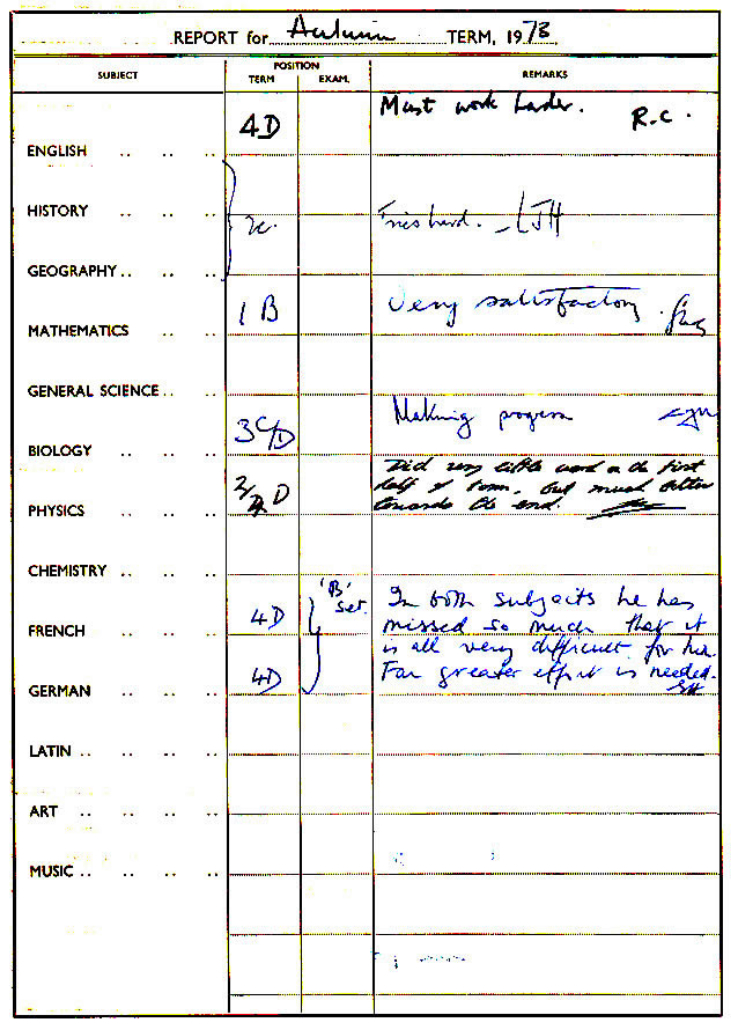 REPORT for Autumn TERM, 1973
SUBJECT POSITION REMARKS
TERM EXAM.
Must work harder. R.C.
4D
ENGLISH .. .. ..
HISTORY .. .. ..
Tries hard. LJH
GEOGRAPHY .. .. ..
1B Very satisfactory.
MATHEMATICS .. .. ..
GENERAL SCIENCE .. ..
Making progress
3C/D
BIOLOGY .. .. ..
Did very little work in the first
half of term, but much better
towards the end.
PHYSICS .. .. ..
CHEMISTRY .. .. ..
'B' set.
In both subjects he has
4D missed so much that it
FRENCH .. .. ..
is all very difficult for him.
4D Far greater effort is needed.
GERMAN .. .. ..
LATIN .. .. ..
ART .. .. ..
MUSIC .. .. ..